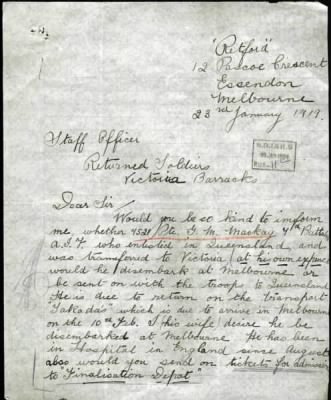 "Retford"
12 Pascoe Crescent
Essendon
Melbourne
23rd January 1919.
Staff Officer
Returned Soldiers
Victoria Barracks
Dear Sir/
Would you be so kind to imform
me, whether 4521 Pte. G. M. Mackay 4th Battn
A.I.F. who enlisted in Queensland, and
was transferred to Victoria (at his own expense
would he disembark at Melbourne or
be sent on with the troops to Queensland
He is due to return on the Transport
which is due to arrive in Melbourne
on the 10th Feb. I his wife desire he be
disembarked at Melbourne. He has been
in Hospital in England since August
also would you send on tickets for admission
to "Finalisation Depot."